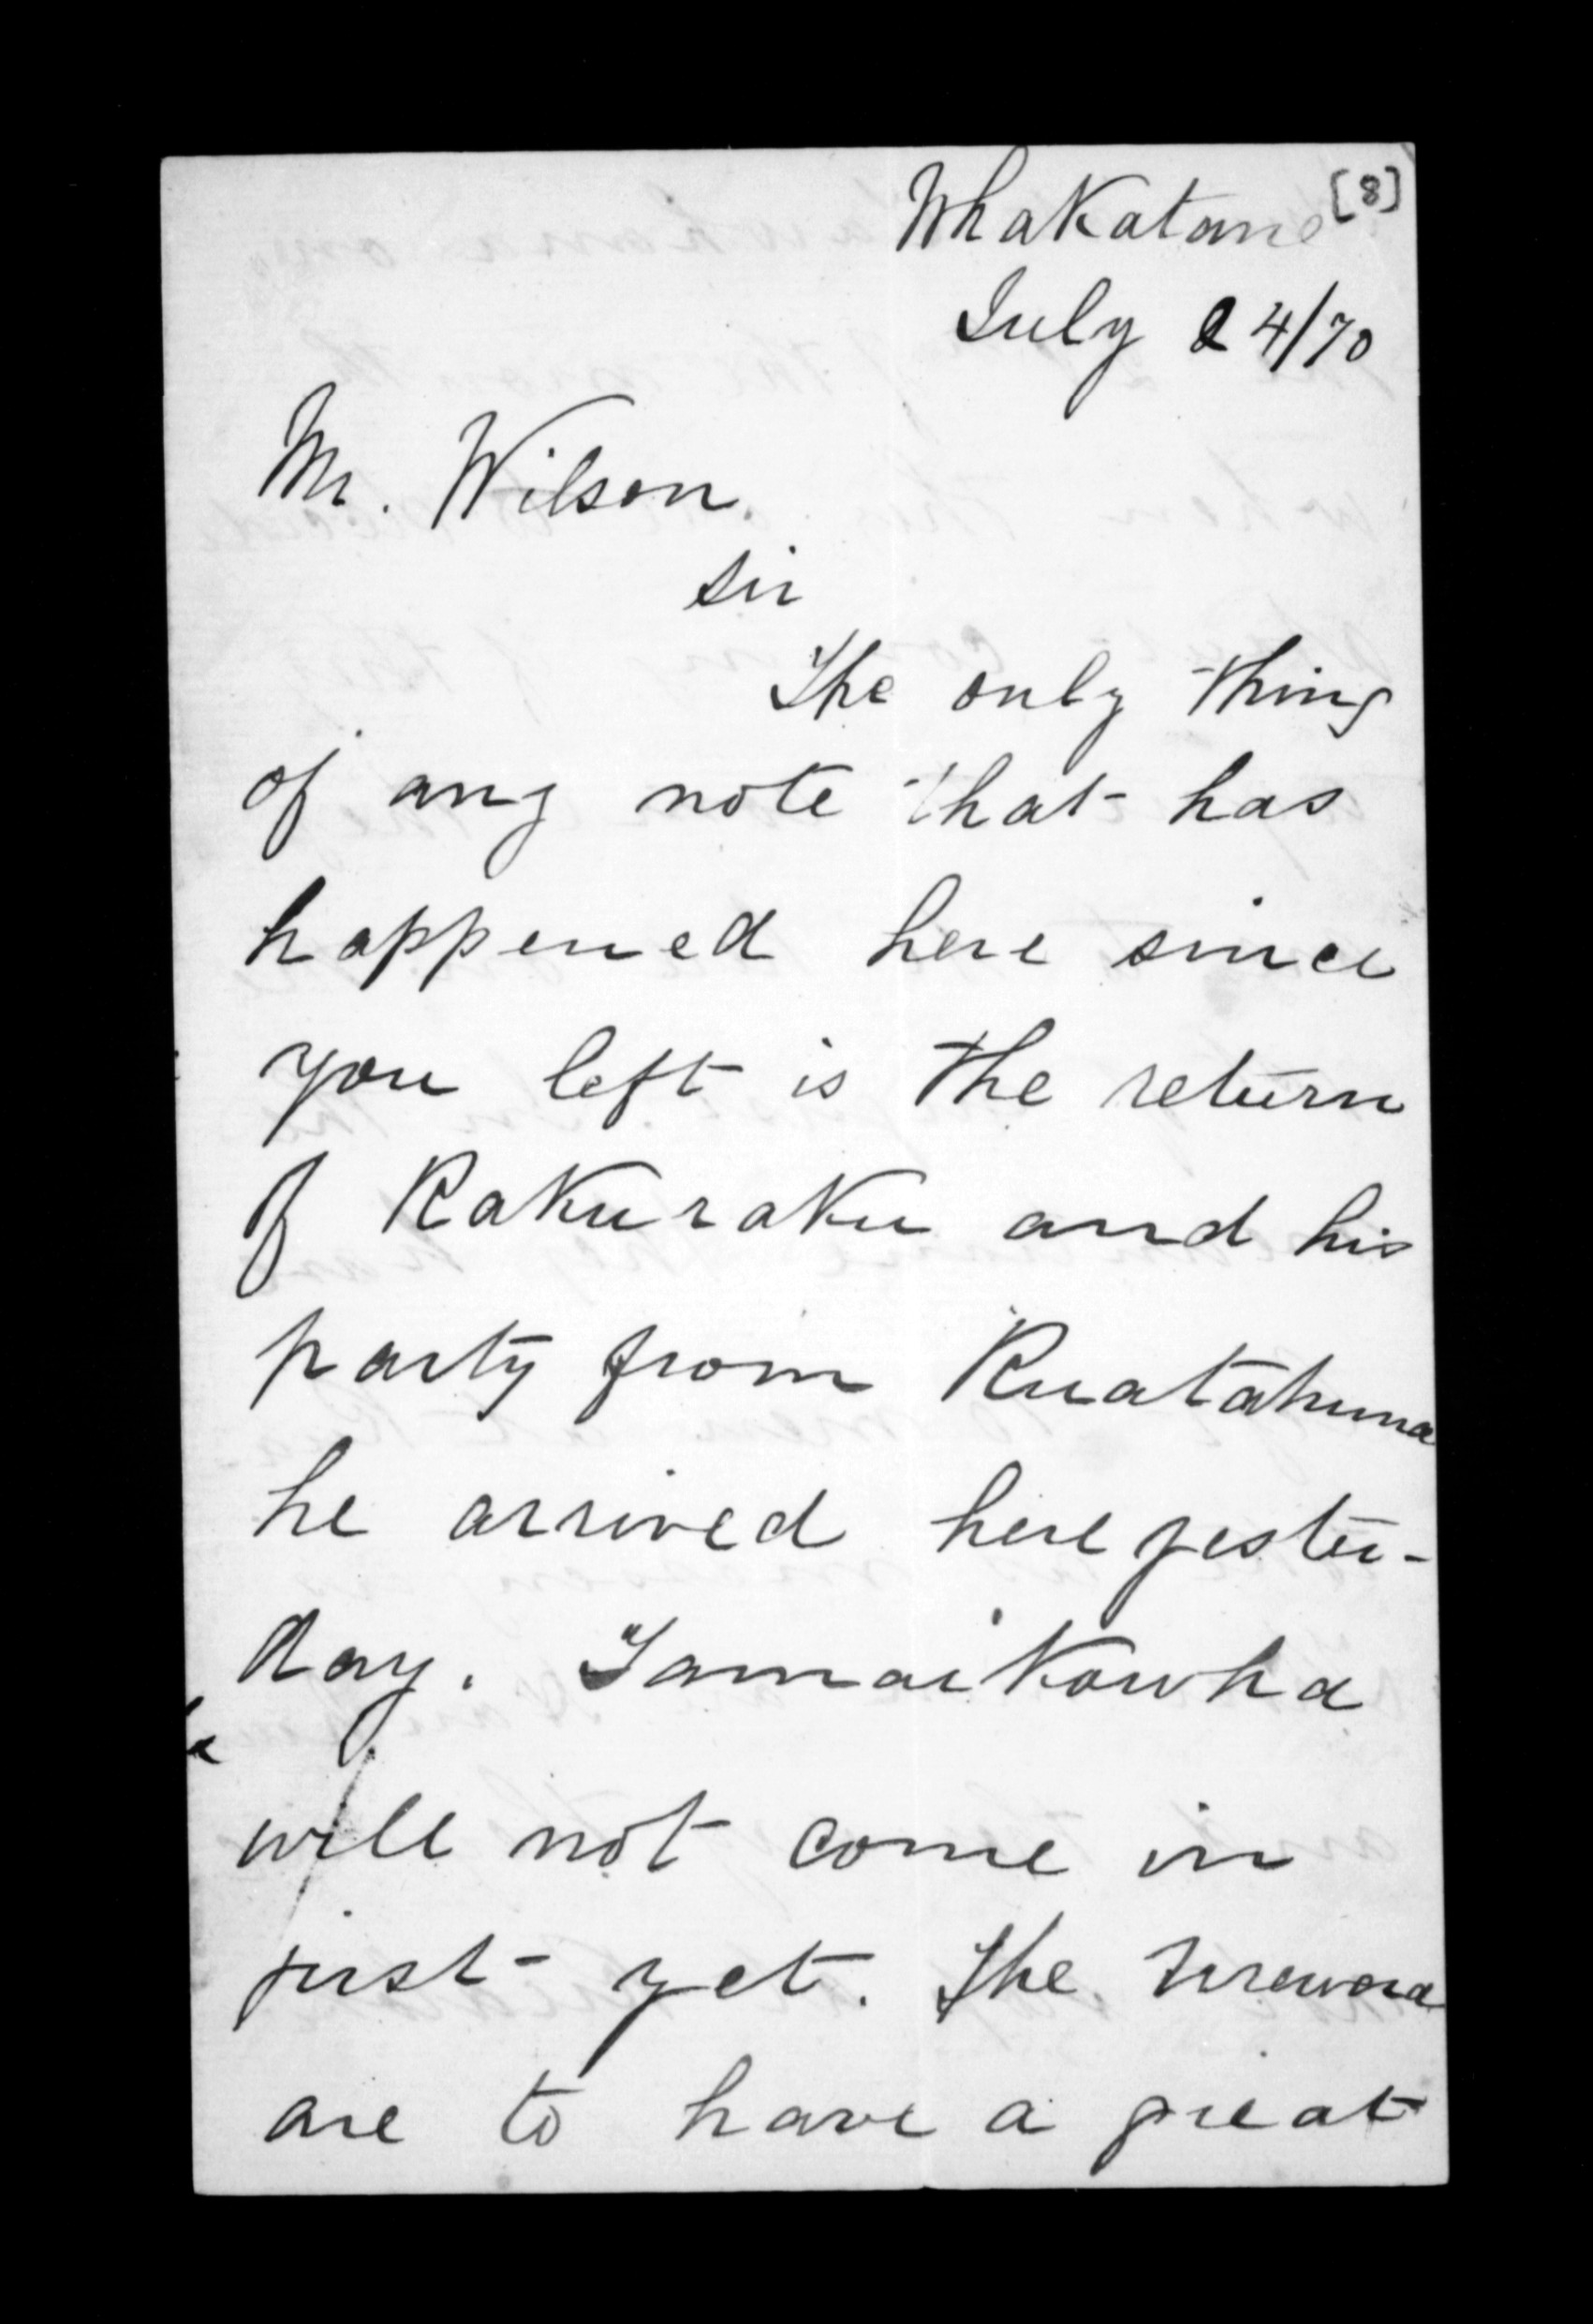 [8]
Whakatane
July 24/70
Mr. Wilson.
Sir
The only thing
of any note that has
happened here since
you left is the return
of Rakuraku and his
party from Ruatahuna
he arrived here yester-
day. Tamaikowha
will not come in
just yet. The Urewera
are to have a great